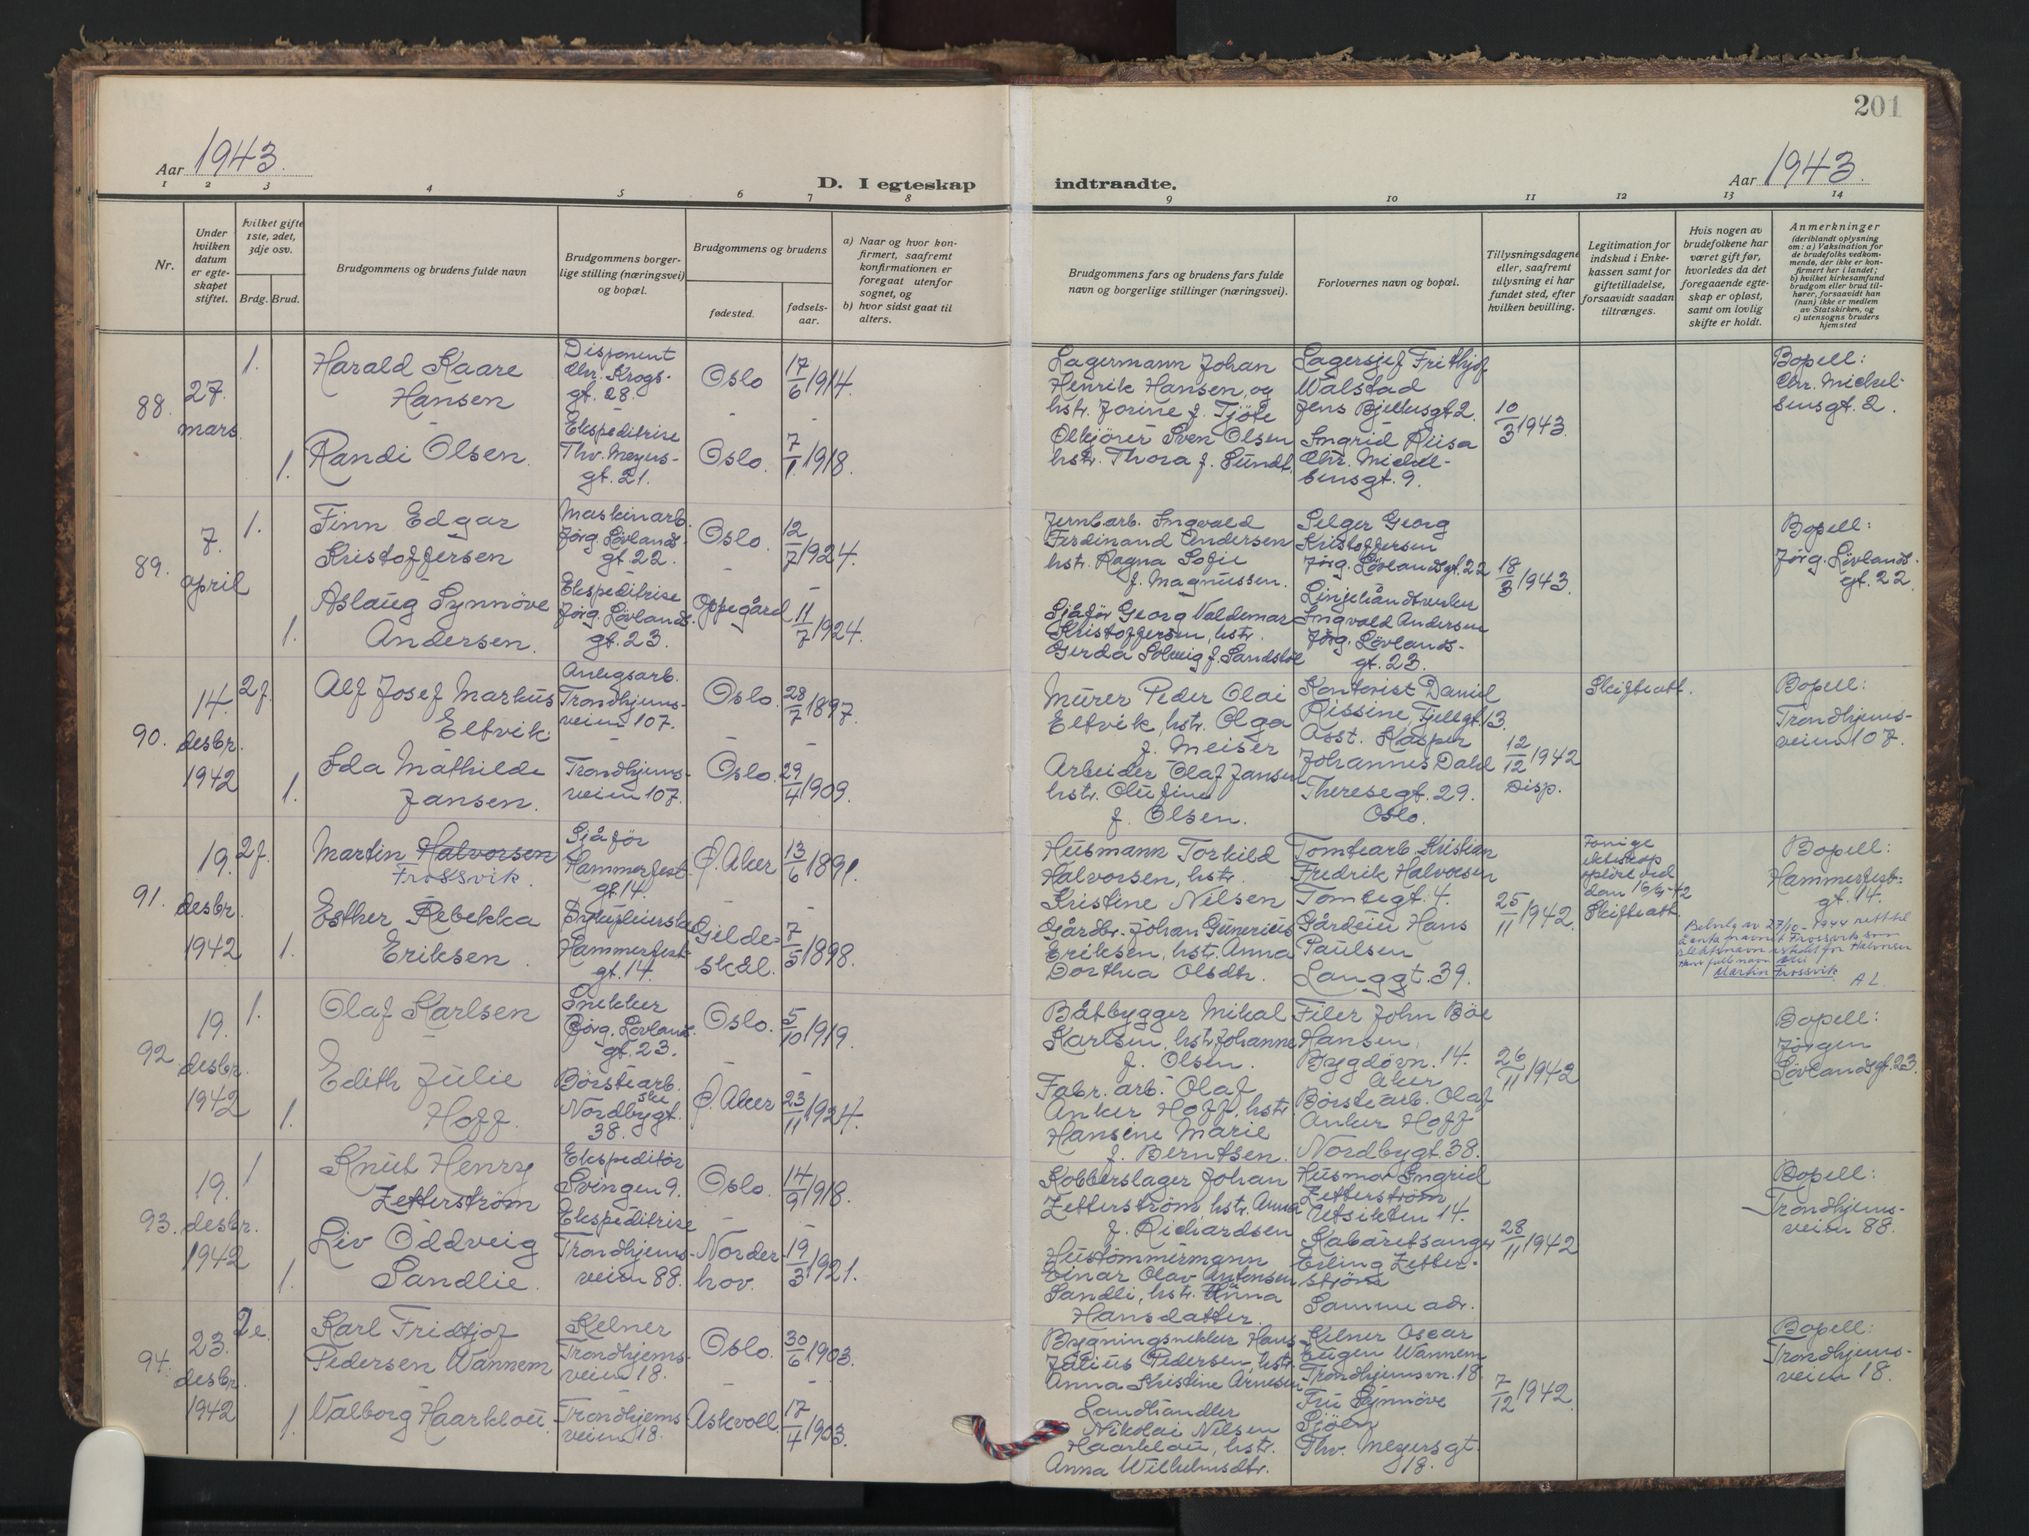 201
Aar 1943.
D. I egteskap
indtraadte.
Aar 1943.
1 2 3 4 5 6 7 8
9 10 11 12 13 14
Nr.
Under
hvilken
datum
er egte-
skapet
stiftet.
hvilket gifte
1ste, 2det,
3dje osv.
Brdg. Brud.
Brudgommens og brudens fulde navn
Brudgommens borger-
lige stilling (næringsvei)
og bopæl.
Brudgommens og brudens
fødested.
fødsels-
aar.
a) Naar og hvor kon-
firmert, saafremt
konfirmationen er
foregaat utenfor
sognet, og
b) hvor sidst gaat til
alters.
Brudgommens fars og brudens fars fulde
navn og borgerlige stillinger (næringsvei).
Forlovernes navn og bopæl.
Tillysningsdagene
eller, saafremt
tillysning ei har
fundet sted, efter
hvilken bevilling.
Legitimation for
indskud i Enke-
kassen samt for
giftetilladelse,
forsaavidt saadan
tiltrænges.
Hvis nogen av
brudefolkene har
været gift før,
hvorledes da det
foregaaende egte-
skap er opløst,
samt om lovlig
skifte er holdt.
Anmerkninger
(deriblandt oplysning
om: a) Vaksination for
de brudefolks vedkom-
mende, der ikke er kon-
firmert her i landet;
b) hvilket kirkesamfund
brudgom eller brud til-
hører, forsaavidt han
(hun) ikke er medlem
av Statskirken, og
c) utensogns bruders
hjemsted
88.
27.
mars
1.
Harald Kaare
Hansen
Disponent
Chr. Krogs-
gt. 28.
Oslo
17/6 1914.
1.
Randi Olsen.
Ekspeditrise
Thv. Meyers-
gt. 21.
Oslo.
7/1 1918.
Lagermann Johan
Henrik Hansen, og
hstr. Jorine f. Tjöte
Ölkjører Sven Olsen
hstr. Thora f. Sundt.
Lagersjef Frithjof
Walstad
Jens Bjelkesgt 2.
Ingrid Riisa
Chr. Michel-
sensgt. 9.
10/3 1943.
Bopell:
Chr. Michel-
sensgt. 2.
89.
7.
april
1.
Finn Edgar
Kristoffersen
Maskinarb.
Jørg. Løvlands-
gt. 22.
Oslo.
12/7 1924.
1.
Aslaug Synnøve
Andersen.
Ekspeditrise
Jørg. Løvlands.
gt. 23.
Oppegård
11/7 1924.
Jernb.arb. Ingvald
Ferdinand Andersen
hstr. Ragna Sofie
f. Magnussen.
Sjåfør Georg Valdemar
Kristoffersen, hstr.
Gerda Solveig f. Sandstøl
Selger Georg
Kristoffersen
Jørg. Løvlandsgt. 22
Ingvald Andersen
Jørg. Løvlands-
gt. 23.
18/3 1943.
Bopell:
Jørg. Løvlands-
gt. 22
90.
14.
desbr.
1942
2 f.
Alf Josef Markus
Eltvik
Anlegsarb.
Trondhjems-
veien 107.
Oslo.
28/7 1897.
1.
Ida Mathilde
Jansen.
Trondhjems-
veien 107.
Oslo.
29/4 1909.
Murer Peder Olai
Eltvik, hstr. Olga
f. Meiser
Arbeider Olaf Jansen
hstr. Olufine
f. Olsen.
Kontorist Daniel
Rissine, Fjellgt. 13.
Asst. Kasper
Johannes Dahl
Theresegt. 29.
Oslo.
12/12 1942
Disp.
Skifteatt.
Bopell:
Trondhjems-
veien 107.
91.
19.
desbr.
1942
2 f.
Martin Halvorsen
Frossvik.
Sjåfør
Hammerfest
gt. 14.
Ø. Aker
13/6 1891.
1.
Esther Rebekka
Eriksen.
Sykepleierske
Hammerfest-
gt. 14.
Gilde-
skål.
7/5 1898.
Husmann Torkild
Halvorsen, hstr.
Kristine Nilsen
Gårdbr. Johan Gunerius
Eriksen, hstr. Anna
Dorthea Olsdtr.
Tomtearb. Kristian
Fredrik Halvorsen
Tomtegt. 4.
Gårdeier Hans
Paulsen
Langgt. 39.
25/11 1942.
Forrige
ekteskap
opløst ved
dom 16/4-42
Skifteatt.
Bopell:
Hammerfest-
gt. 14.
Bevilg av 27/10-1944 rett til
å anta navnet Frossvik som
slektsnavn istedet for Halvorsen
Hans fulle navn blir
Martin Frossvik.
A L.
92.
19.
desbr.
1942
1.
Olaf Karlsen
Snekker
Jørg. Løvlands.
gt. 23.
Oslo.
5/10 1919.
1.
Edith Julie
Hoff.
Børstearb.ske
Nordbygt.
38.
Ø. Aker
23/11 1924.
Båtbygger Mikal
Karlsen, hstr. Johanne
f. Olsen.
Fabr. arb. Olaf
Anker Hoff, hstr.
Hansine Marie
f. Berntsen.
Filer John Bøe
Hansen,
Bygdøvn. 14.
Aker
Børstearb. Olaf
Anker Hoff
Nordbygt. 38.
26/11 1942
Bopell:
Jørgen
Løvlandsgt. 23.
93.
19.
desbr.
1942
1
Knut Henry
Zetterström
Ekspeditør
Svingen 9.
Oslo.
14/9 1918.
1.
Liv Oddveig
Sandlie.
Ekspeditrise
Trondhjems-
veien 88.
Norder-
hov.
19/3 1921.
Kobberslager Johan
Zetterström hstr. Anna
f. Richardsen
Hustømmermann
Einar Olav Antonsen
Sandli, hstr. Anna
Hansdatter.
Husmor Ingrid
Zetterström
Utsikten 14.
Kabaretsanger
Erling Zetter-
ström
Samme adr.
28/11 1942
Bopell:
Trondhjems-
veien 88.
94.
23.
desbr.
1942
2 e.
Karl Fridtjof
Pedersen Wannem
Kelner
Trondhjems-
veien 18.
Oslo.
30/6 1903.
1.
Valborg Haarklou.
Trondhjems
veien 18.
Askvoll
17/4 1903.
Bygningsnekker Hans
Julius Pedersen, hstr.
Anna Kristine Arnesen
Landhandler
Nikolai Nilsen
Haarklou, hstr.
Anna Wilhelmsdtr.
Kelner Oscar
Eugen Wannem
Trondhjemsvn. 18
Fru Synnøve
Sjöen
Thv. Meyersgt.
18.
7/12 1942.
Bopell:
Trondhjems-
veien 18.